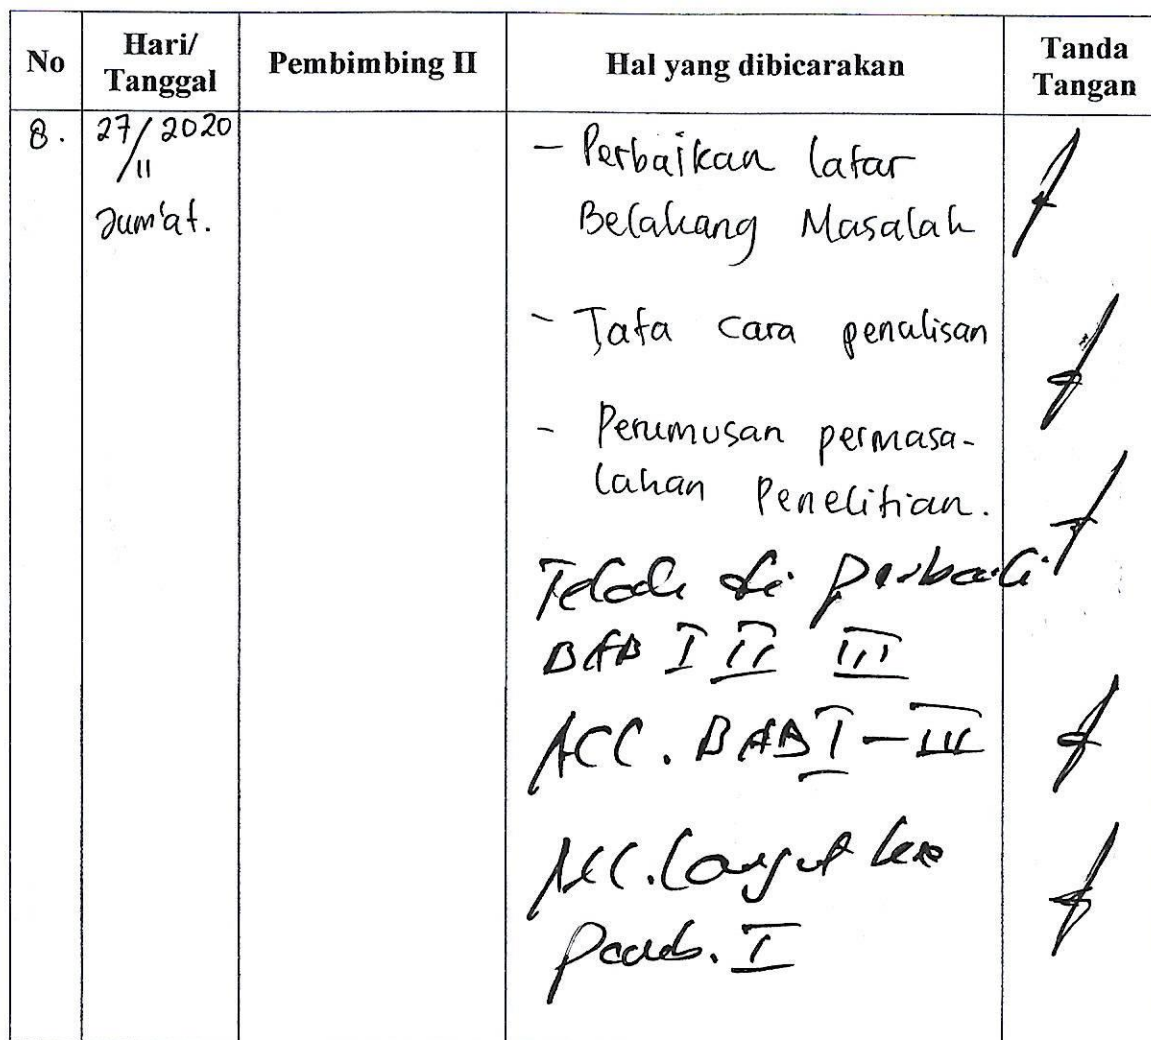 No
Hari/
Tanggal
Pembimbing II
Hal yang dibicarakan
Tanda
Tangan
8.
27/2020
/11
Jum'at.
- Perbaikan latar
Belakang Masalah
- Tata cara penulisan
- Perumusan permasa-
lahan Penelitian.
Telah di perbaiki
BAB I II III
ACC. BAB I - III
ACC. Lanjut ke
Pemb. I